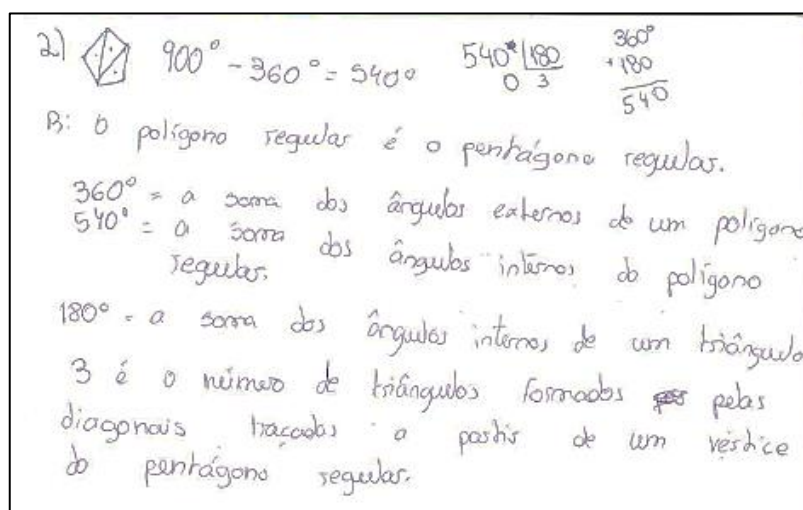 2) 900° - 360° = 540° 540° |180 360°
0 3 +180
540
R: O polígono regular é o pentágono regular.
360° = a soma dos ângulos externos de um polígono
540° = a soma dos ângulos internos do polígono
regular.
180° = a soma dos ângulos internos de um triângulo
3 é o número de triângulos formados pelas
diagonais traçadas a partir de um vértice
do pentágono regular.